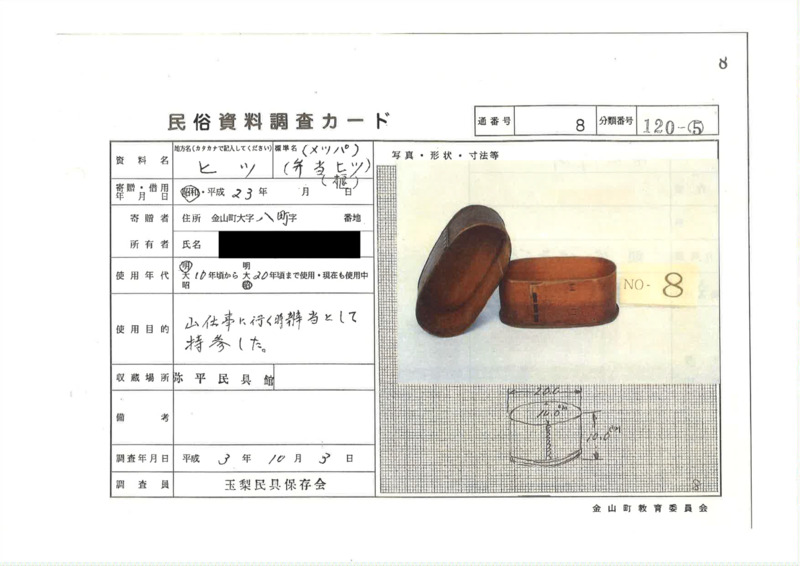 8
民俗資料調査カード
通番号 8 分類番号 120-⑤
資料名 地方名(カタカナで記入してください) ヒツ 標準名 (メツパ) (弁当ヒツ)
寄贈・借用年月日 昭和・平成 23年 月 日
寄贈者 住所 金山町大字八町字 番地
所有者 氏名
使用年代 明大昭10年頃から明大昭20年頃まで使用・現在も使用中
使用目的 山仕事に行く時辨当として
持参した。
収蔵場所 弥平民具館
備考
調査年月日 平成 3年 10月 3日
調査員 玉梨民具保存会
写真・形状・寸法等
NO- 8
20.0
10.0cm
10.0cm
8
金山町教育委員会